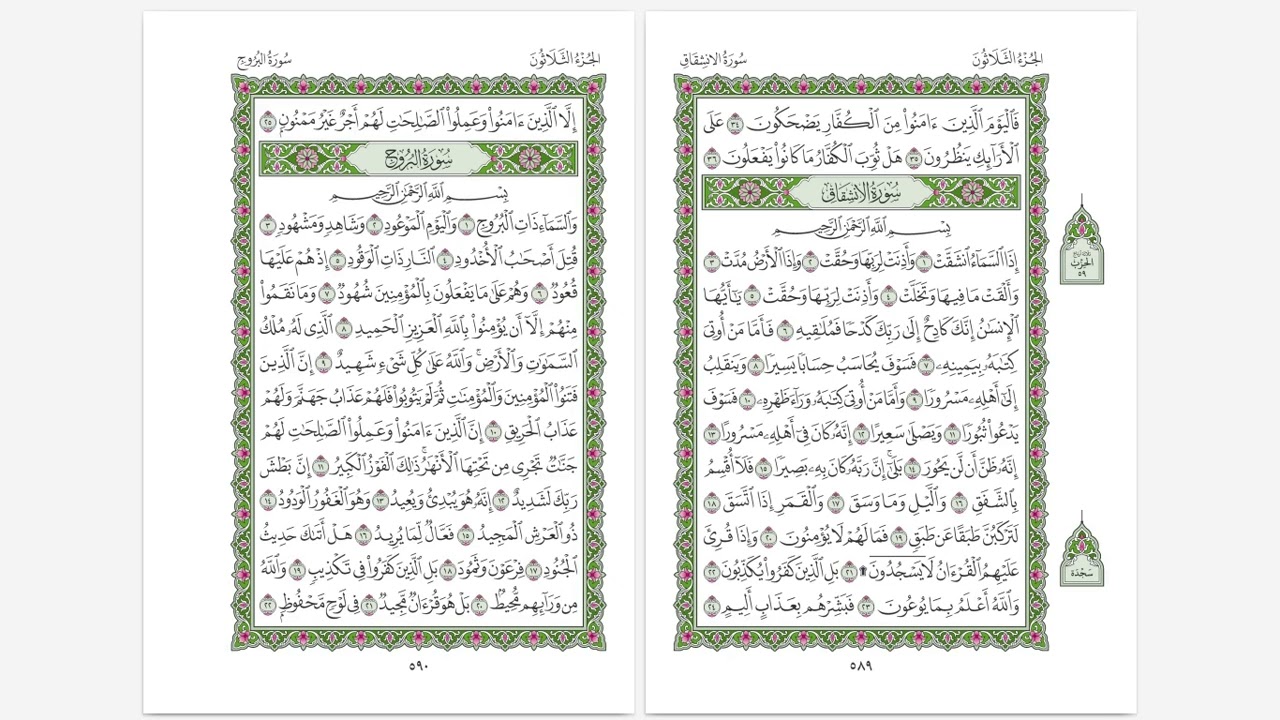 الجُزْءُ الثَّلَاثُونَ
سُورَةُ الانشِقَاقِ
فَٱلۡيَوۡمَ ٱلَّذِينَ ءَامَنُواْ مِنَ ٱلۡكُفَّارِ يَضۡحَكُونَ ٣٤ عَلَى
ٱلۡأَرَآئِكِ يَنظُرُونَ ٣٥ هَلۡ ثُوِّبَ ٱلۡكُفَّارُ مَا كَانُواْ يَفۡعَلُونَ ٣٦
سُورَةُ الانشِقَاقِ
بِسۡمِ ٱللَّهِ ٱلرَّحۡمَٰنِ ٱلرَّحِيمِ
إِذَا ٱلسَّمَآءُ ٱنشَقَّتۡ ١ وَأَذِنَتۡ لِرَبِّهَا وَحُقَّتۡ ٢ وَإِذَا ٱلۡأَرۡضُ مُدَّتۡ ٣
وَأَلۡقَتۡ مَا فِيهَا وَتَخَلَّتۡ ٤ وَأَذِنَتۡ لِرَبِّهَا وَحُقَّتۡ ٥ يَٰٓأَيُّهَا
ٱلۡإِنسَٰنُ إِنَّكَ كَادِحٌ إِلَىٰ رَبِّكَ كَدۡحٗا فَمُلَٰقِيهِ ٦ فَأَمَّا مَنۡ أُوتِيَ
كِتَٰبَهُۥ بِيَمِينِهِۦ ٧ فَسَوۡفَ يُحَاسَبُ حِسَابٗا يَسِيرٗا ٨ وَيَنقَلِبُ
إِلَىٰٓ أَهۡلِهِۦ مَسۡرُورٗا ٩ وَأَمَّا مَنۡ أُوتِيَ كِتَٰبَهُۥ وَرَآءَ ظَهۡرِهِۦ ١٠ فَسَوۡفَ
يَدۡعُواْ ثُبُورٗا ١١ وَيَصۡلَىٰ سَعِيرًا ١٢ إِنَّهُۥ كَانَ فِيٓ أَهۡلِهِۦ مَسۡرُورًا ١٣
إِنَّهُۥ ظَنَّ أَن لَّن يَحُورَ ١٤ بَلَىٰٓۚ إِنَّ رَبَّهُۥ كَانَ بِهِۦ بَصِيرٗا ١٥ فَلَآ أُقۡسِمُ
بِٱلشَّفَقِ ١٦ وَٱلَّيۡلِ وَمَا وَسَقَ ١٧ وَٱلۡقَمَرِ إِذَا ٱتَّسَقَ ١٨
لَتَرۡكَبُنَّ طَبَقًا عَن طَبَقٖ ١٩ فَمَا لَهُمۡ لَا يُؤۡمِنُونَ ٢٠ وَإِذَا قُرِئَ
عَلَيۡهِمُ ٱلۡقُرۡءَانُ لَا يَسۡجُدُونَ۩ ٢١ بَلِ ٱلَّذِينَ كَفَرُواْ يُكَذِّبُونَ ٢٢
وَٱللَّهُ أَعۡلَمُ بِمَا يُوعُونَ ٢٣ فَبَشِّرۡهُم بِعَذَابٍ أَلِيمٍ ٢٤
الحِزْب
٥٩
سَجْدَة
٥٨٩
الجُزْءُ الثَّلَاثُونَ
سُورَةُ البُرُوجِ
إِلَّا ٱلَّذِينَ ءَامَنُواْ وَعَمِلُواْ ٱلصَّٰلِحَٰتِ لَهُمۡ أَجۡرٌ غَيۡرُ مَمۡنُونِۭ ٢٥
سُورَةُ البُرُوجِ
بِسۡمِ ٱللَّهِ ٱلرَّحۡمَٰنِ ٱلرَّحِيمِ
وَٱلسَّمَآءِ ذَاتِ ٱلۡبُرُوجِ ١ وَٱلۡيَوۡمِ ٱلۡمَوۡعُودِ ٢ وَشَاهِدٖ وَمَشۡهُودٖ ٣
قُتِلَ أَصۡحَٰبُ ٱلۡأُخۡدُودِ ٤ ٱلنَّارِ ذَاتِ ٱلۡوَقُودِ ٥ إِذۡ هُمۡ عَلَيۡهَا
قُعُودٞ ٦ وَهُمۡ عَلَىٰ مَا يَفۡعَلُونَ بِٱلۡمُؤۡمِنِينَ شُهُودٞ ٧ وَمَا نَقَمُواْ
مِنۡهُمۡ إِلَّآ أَن يُؤۡمِنُواْ بِٱللَّهِ ٱلۡعَزِيزِ ٱلۡحَمِيدِ ٨ ٱلَّذِي لَهُۥ مُلۡكُ
ٱلسَّمَٰوَٰتِ وَٱلۡأَرۡضِۚ وَٱللَّهُ عَلَىٰ كُلِّ شَيۡءٖ شَهِيدٌ ٩ إِنَّ ٱلَّذِينَ
فَتَنُواْ ٱلۡمُؤۡمِنِينَ وَٱلۡمُؤۡمِنَٰتِ ثُمَّ لَمۡ يَتُوبُواْ فَلَهُمۡ عَذَابُ جَهَنَّمَ وَلَهُمۡ
عَذَابُ ٱلۡحَرِيقِ ١٠ إِنَّ ٱلَّذِينَ ءَامَنُواْ وَعَمِلُواْ ٱلصَّٰلِحَٰتِ لَهُمۡ
جَنَّٰتٞ تَجۡرِي مِن تَحۡتِهَا ٱلۡأَنۡهَٰرُۚ ذَٰلِكَ ٱلۡفَوۡزُ ٱلۡكَبِيرُ ١١ إِنَّ بَطۡشَ
رَبِّكَ لَشَدِيدٌ ١٢ إِنَّهُۥ هُوَ يُبۡدِئُ وَيُعِيدُ ١٣ وَهُوَ ٱلۡغَفُورُ ٱلۡوَدُودُ ١٤
ذُو ٱلۡعَرۡشِ ٱلۡمَجِيدُ ١٥ فَعَّالٞ لِّمَا يُرِيدُ ١٦ هَلۡ أَتَىٰكَ حَدِيثُ
ٱلۡجُنُودِ ١٧ فِرۡعَوۡنَ وَثَمُودَ ١٨ بَلِ ٱلَّذِينَ كَفَرُواْ فِي تَكۡذِيبٖ ١٩ وَٱللَّهُ
مِن وَرَآئِهِم مُّحِيطُۢ ٢٠ بَلۡ هُوَ قُرۡءَانٞ مَّجِيدٞ ٢١ فِي لَوۡحٖ مَّحۡفُوظِۭ ٢٢
٥٩٠